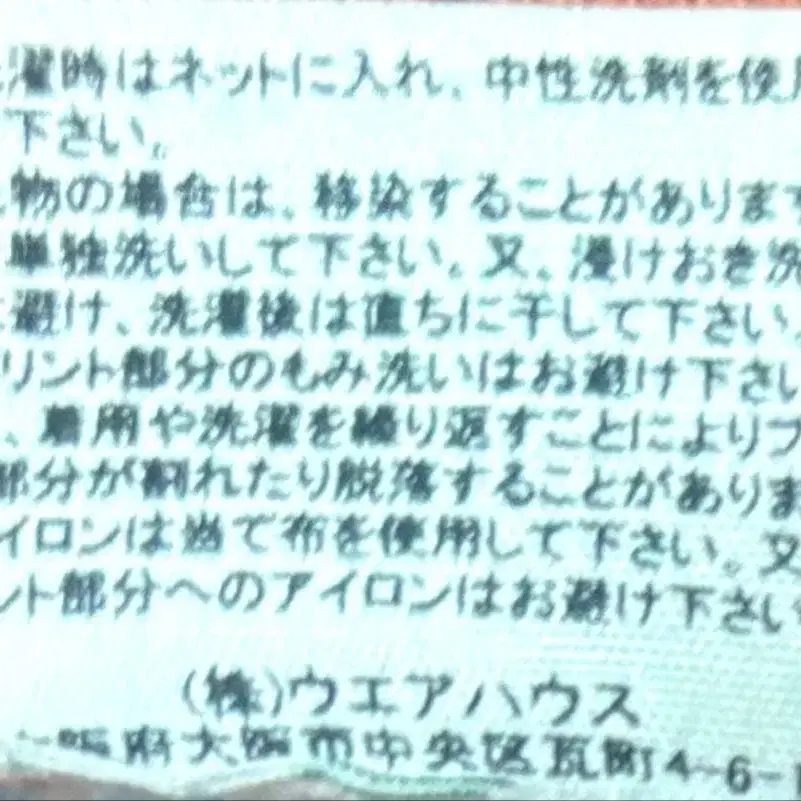 濯時はネットに入れ、中性洗剤を使用
下さい。
物の場合は、移染することがあります
単独洗いして下さい。又、浸けおき洗
避け、洗濯後は直ちに干して下さい。
リント部分のもみ洗いはお避け下さい
、着用や洗濯を繰り返すことによりプ
部分が割れたり脱落することがありま
イロンは当て布を使用して下さい。又
ント部分へのアイロンはお避け下さい
(株)ウエアハウス
大阪市中央区瓦町4-6-